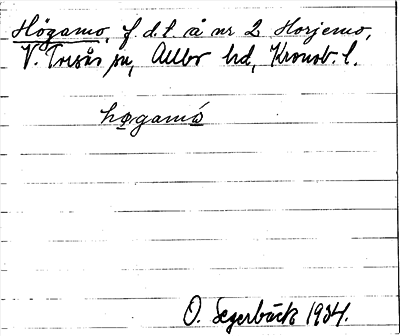 Högamo, f.d.t. å nr 2 Horjemo,
V. Torsås sn, Allbo hd, Kronob. l.
høgamó
O. Segerbäck 1934.